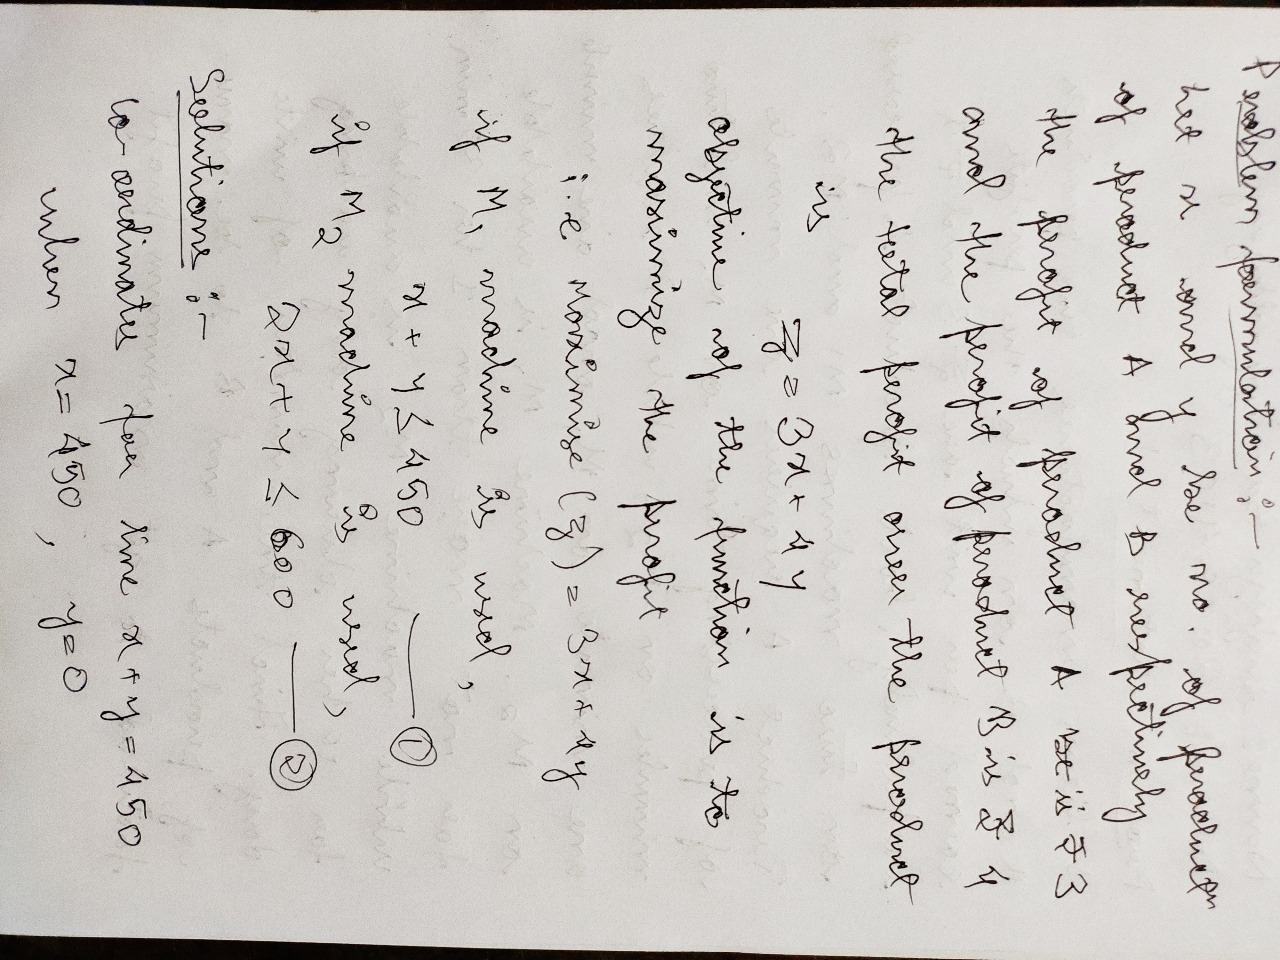 Problem formulation :-
Let x and y be no. of product
of product A and B respectively
the profit of product A is ₹ 3
and the profit of product B is ₹ 4
the total profit over the product
is
z = 3x + 4y
objective of the function is to
maximize the profit
i.e Maximise (z) = 3x + 4y
if M1 machine is used,
x + y ≤ 450 —— ①
if M2 machine is used,
2x + y ≤ 600 —— ②
Solutions :-
Co-ordinates for line x + y = 450
when x = 450, y = 0